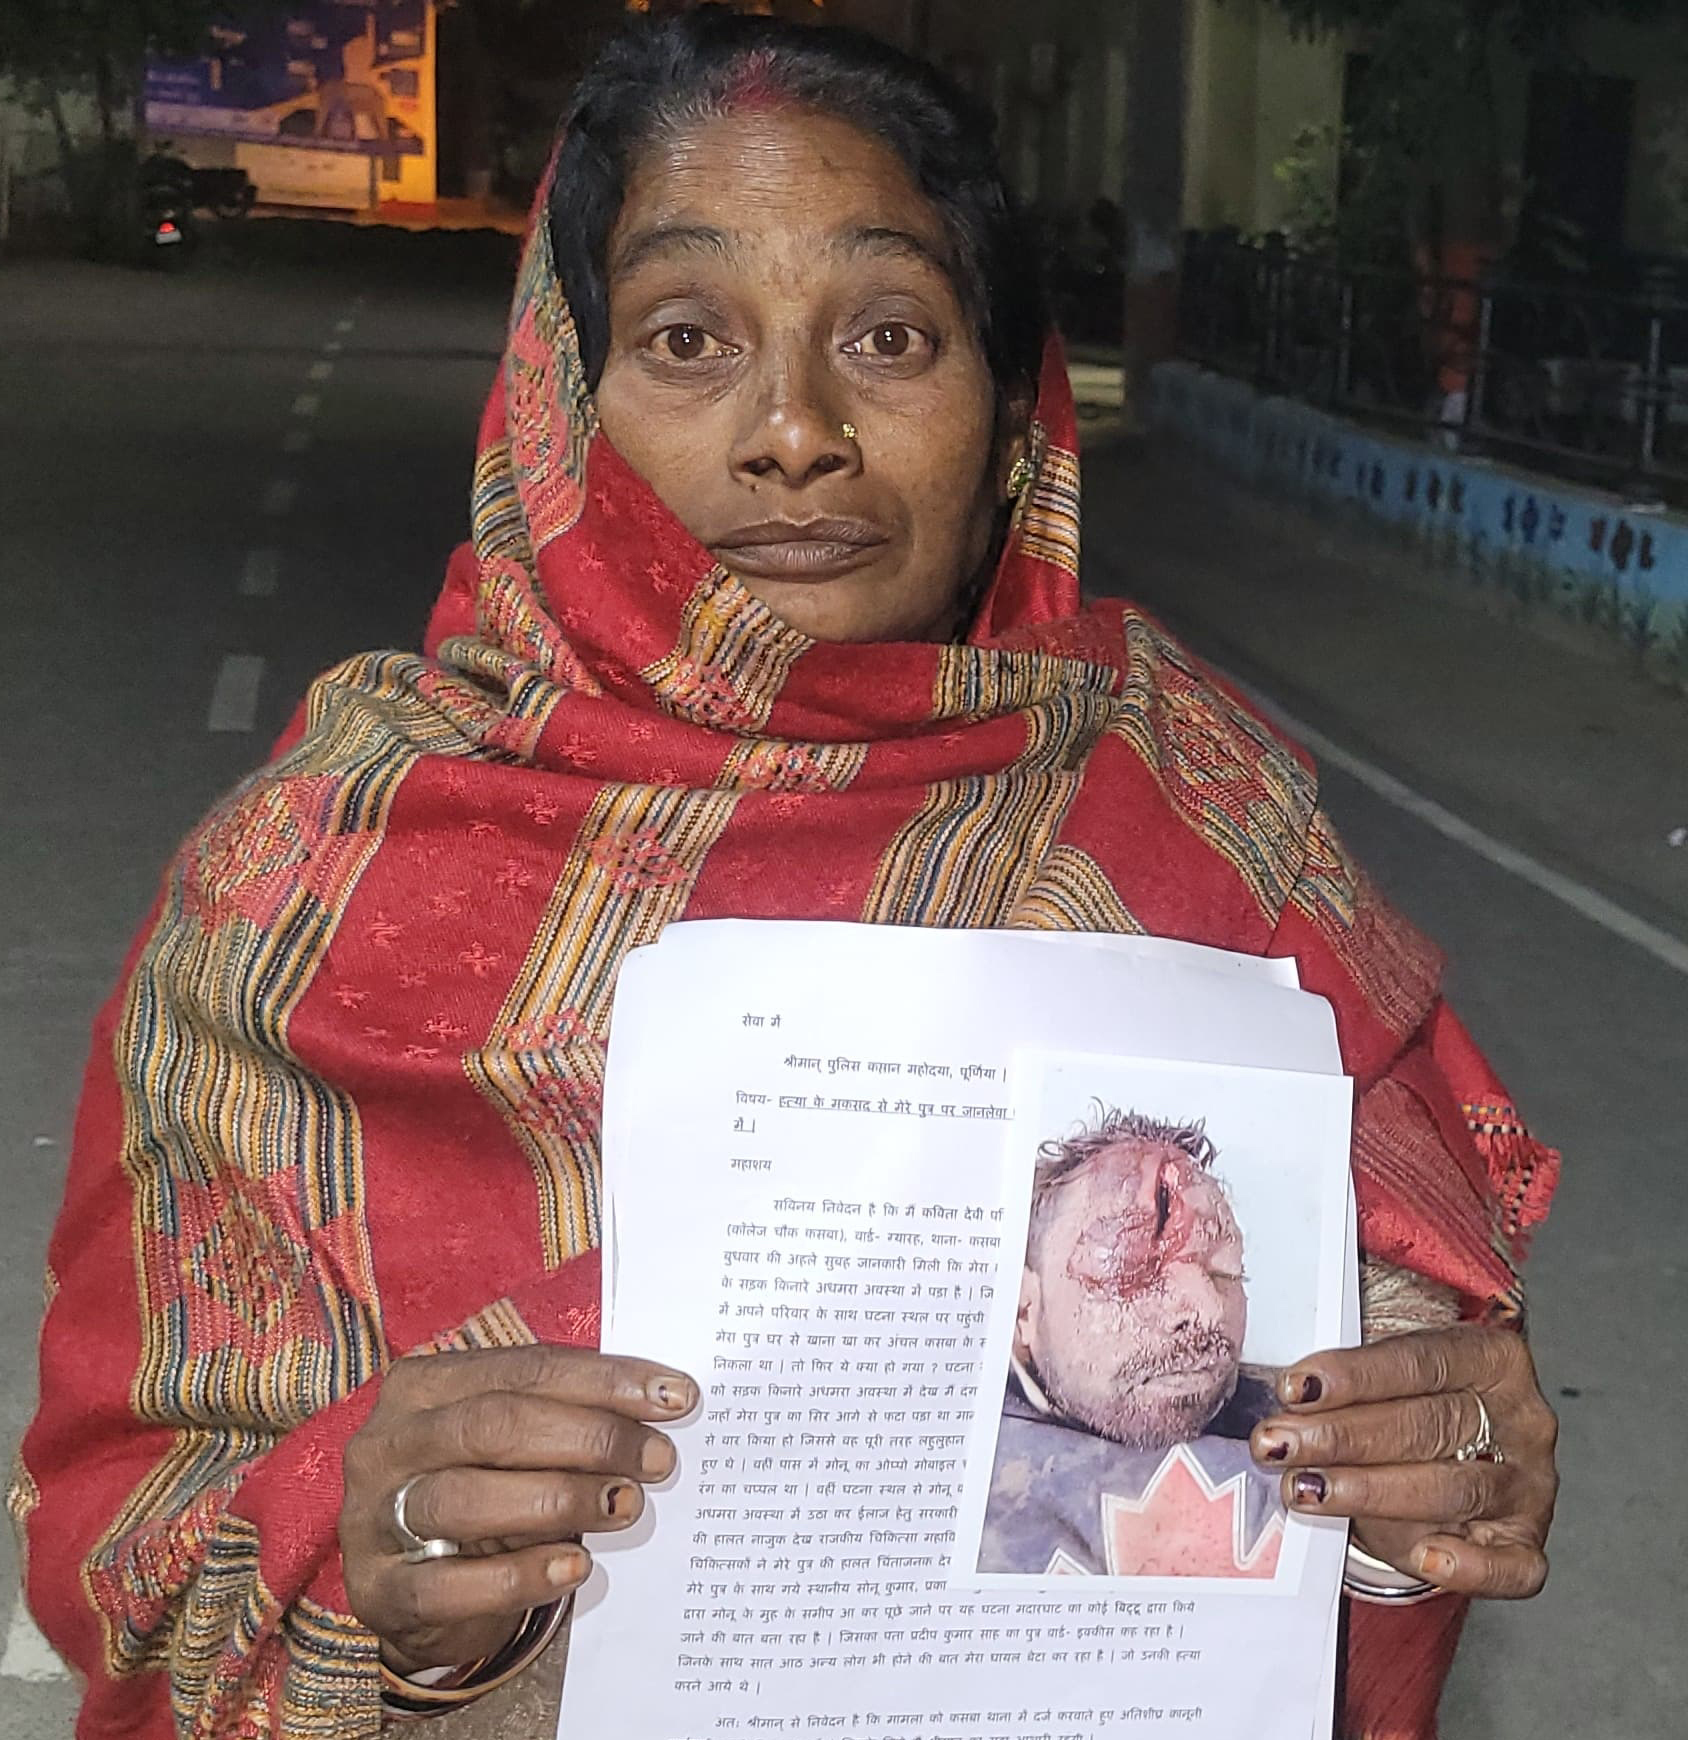 सेवा में
श्रीमान् पुलिस कप्तान महोदया, पूर्णिया |
विषय- हत्या के मकसद से मेरे पुत्र पर जानलेवा
में |
महाशय
सविनय निवेदन है कि मैं कविता देवी
(कॉलेज चौक कसबा), वार्ड- ग्यारह, थाना- कसबा
बुधवार की अहले सुबह जानकारी मिली कि मेरा
के सड़क किनारे अधमरा अवस्था में पड़ा है |
में अपने परिवार के साथ घटना स्थल पर पहुंची
मेरा पुत्र घर से खाना खा कर अंचल कसबा के
निकला था | तो फिर ये क्या हो गया ? घटना
को सड़क किनारे अधमरा अवस्था में देख मैं दंग
जहाँ मेरा पुत्र का सिर आगे से फटा पड़ा था
से वार किया हो जिससे वह पूरी तरह लहुलुहान
हुए थे | वहीं पास में मोनू का ओप्पो मोबाइल
रंग का चप्पल था | वहीं घटना स्थल से मोनू
अधमरा अवस्था में उठा कर ईलाज हेतु सरकारी
की हालत नाजुक देख राजकीय चिकित्सा
चिकित्सकों ने मेरे पुत्र की हालत चिंताजनक
मेरे पुत्र के साथ गये स्थानीय सोनू कुमार,
द्वारा मोनू के मुह के समीप आ कर पूछे जाने पर यह घटना मदारघाट का कोई बिट्टू द्वारा किये
जाने की बात बता रहा है | जिसका पता प्रदीप कुमार साह का पुत्र वार्ड- इक्कीस कह रहा है |
जिनके साथ सात आठ अन्य लोग भी होने की बात मेरा घायल बेटा कर रहा है | जो उनकी हत्या
करने आये थे |
अतः श्रीमान् से निवेदन है कि मामला को कसबा थाना में दर्ज करवाते हुए अतिशीघ्र कानूनी